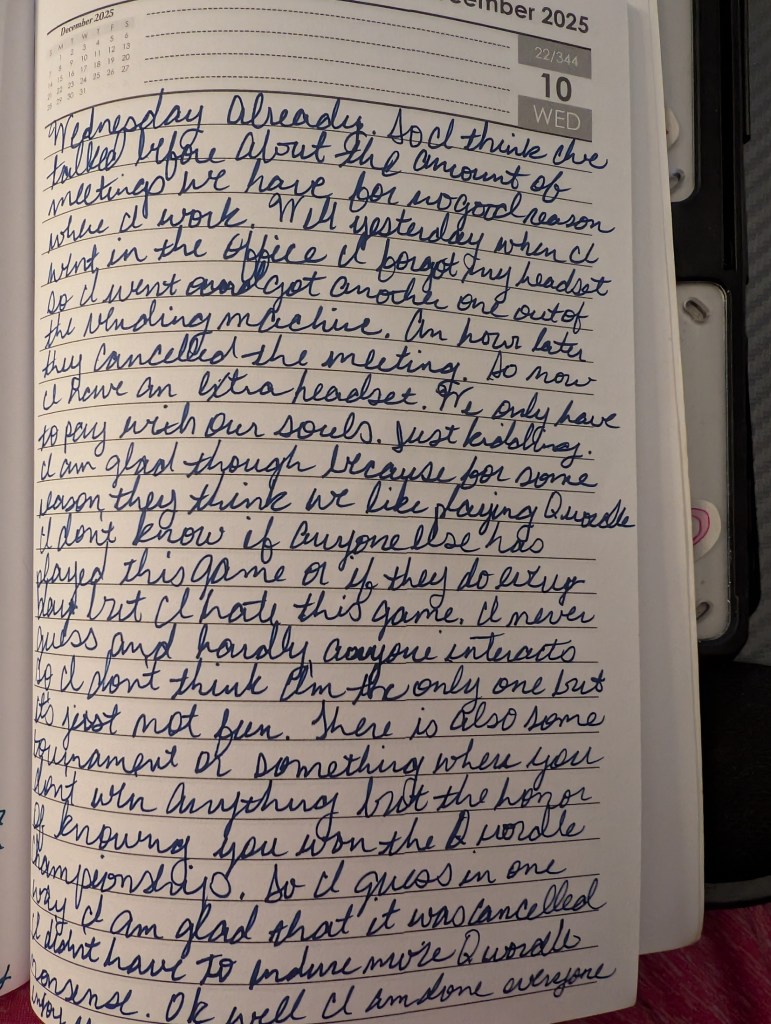 December 2025
December 2025
S M T W T F S
1 2 3 4 5 6
7 8 9 10 11 12 13
14 15 16 17 18 19 20
21 22 23 24 25 26 27
28 29 30 31
22/344
10
WED
Wednesday Already. So I think I've
talked before about the amount of
meetings we have for no good reason
where I work. Well yesterday when I
went in the office I forgot my headset
so I went and got another one out of
the vending machine. An hour later
they cancelled the meeting. So now
I have an extra headset. We only have
to pay with our souls. Just kidding.
I am glad though because for some
reason they think we like playing Quordle
I dont know if anyone else has
played this game or if they do every
day but I hate this game. I never
guess and hardly anyone interacts
So I don't think I'm the only one but
it's just not fun. There is also some
tournament or something where you
dont win anything but the honor
of knowing you won the Quordle
Championships. So I guess in one
way I am glad that it was cancelled
I didn't have to endure more Quordle
nonsense. Ok well I am done everyone
enjoy